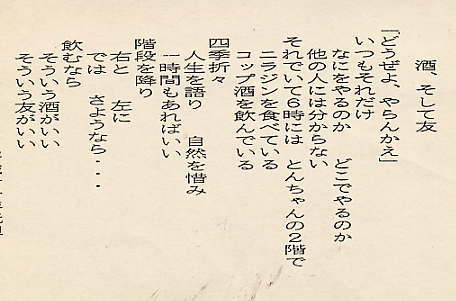 酒、そして友
「どうぜよ、やらんかえ」
いつもそれだけ
なにをやるのか　どこでやるのか
他の人には分からない
それでいて6時には　とんちゃんの2階で
ニラジンを食べている
コップ酒を飲んでいる
四季折々
人生を語り　自然を惜み
一時間もあればいい
階段を降り
右と　左に
では　さようなら・・・
飲むなら
そういう酒がいい
そういう友がいい